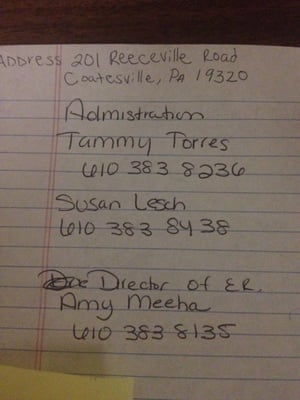 Address 201 Reeceville Road
Coatesville, PA 19320
Admistration
Tammy Torres
610 383 8236
Susan Lesch
610 383 8438
Director of ER.
Amy Meeha
610 383 8135